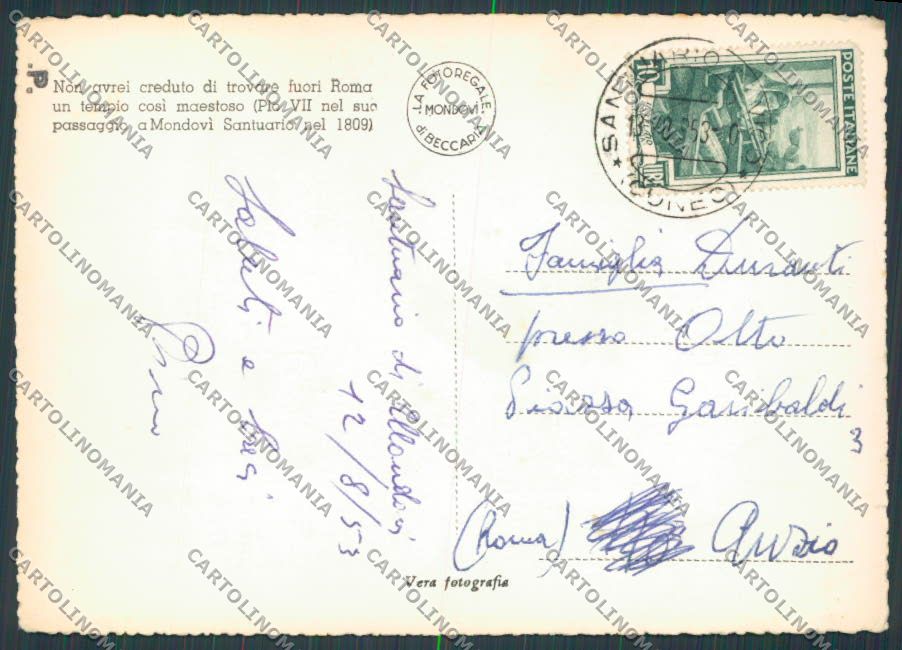 Non avrei creduto di trovare fuori Roma
un tempio così maestoso (Pio VII nel suo
passaggio a Mondovì Santuario, nel 1809)
LA FOTOREGALE
MONDOVI
di BECCARIA
SANTUARIO
(CUNEO)
POSTE ITALIANE
LIRE
Santuario di Mondovì
12/8/53
Saluti e baci
Famiglia Duranti
presso Olto
Piazza Garibaldi
3
(Roma) Anzio
Vera fotografia
CARTOLINOMANIA